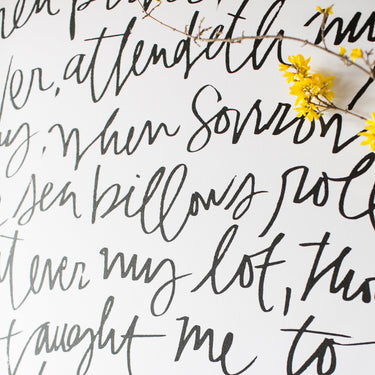 attendeth my
when Sorrow
sea billows roll
ever my lot, thou
taught me to